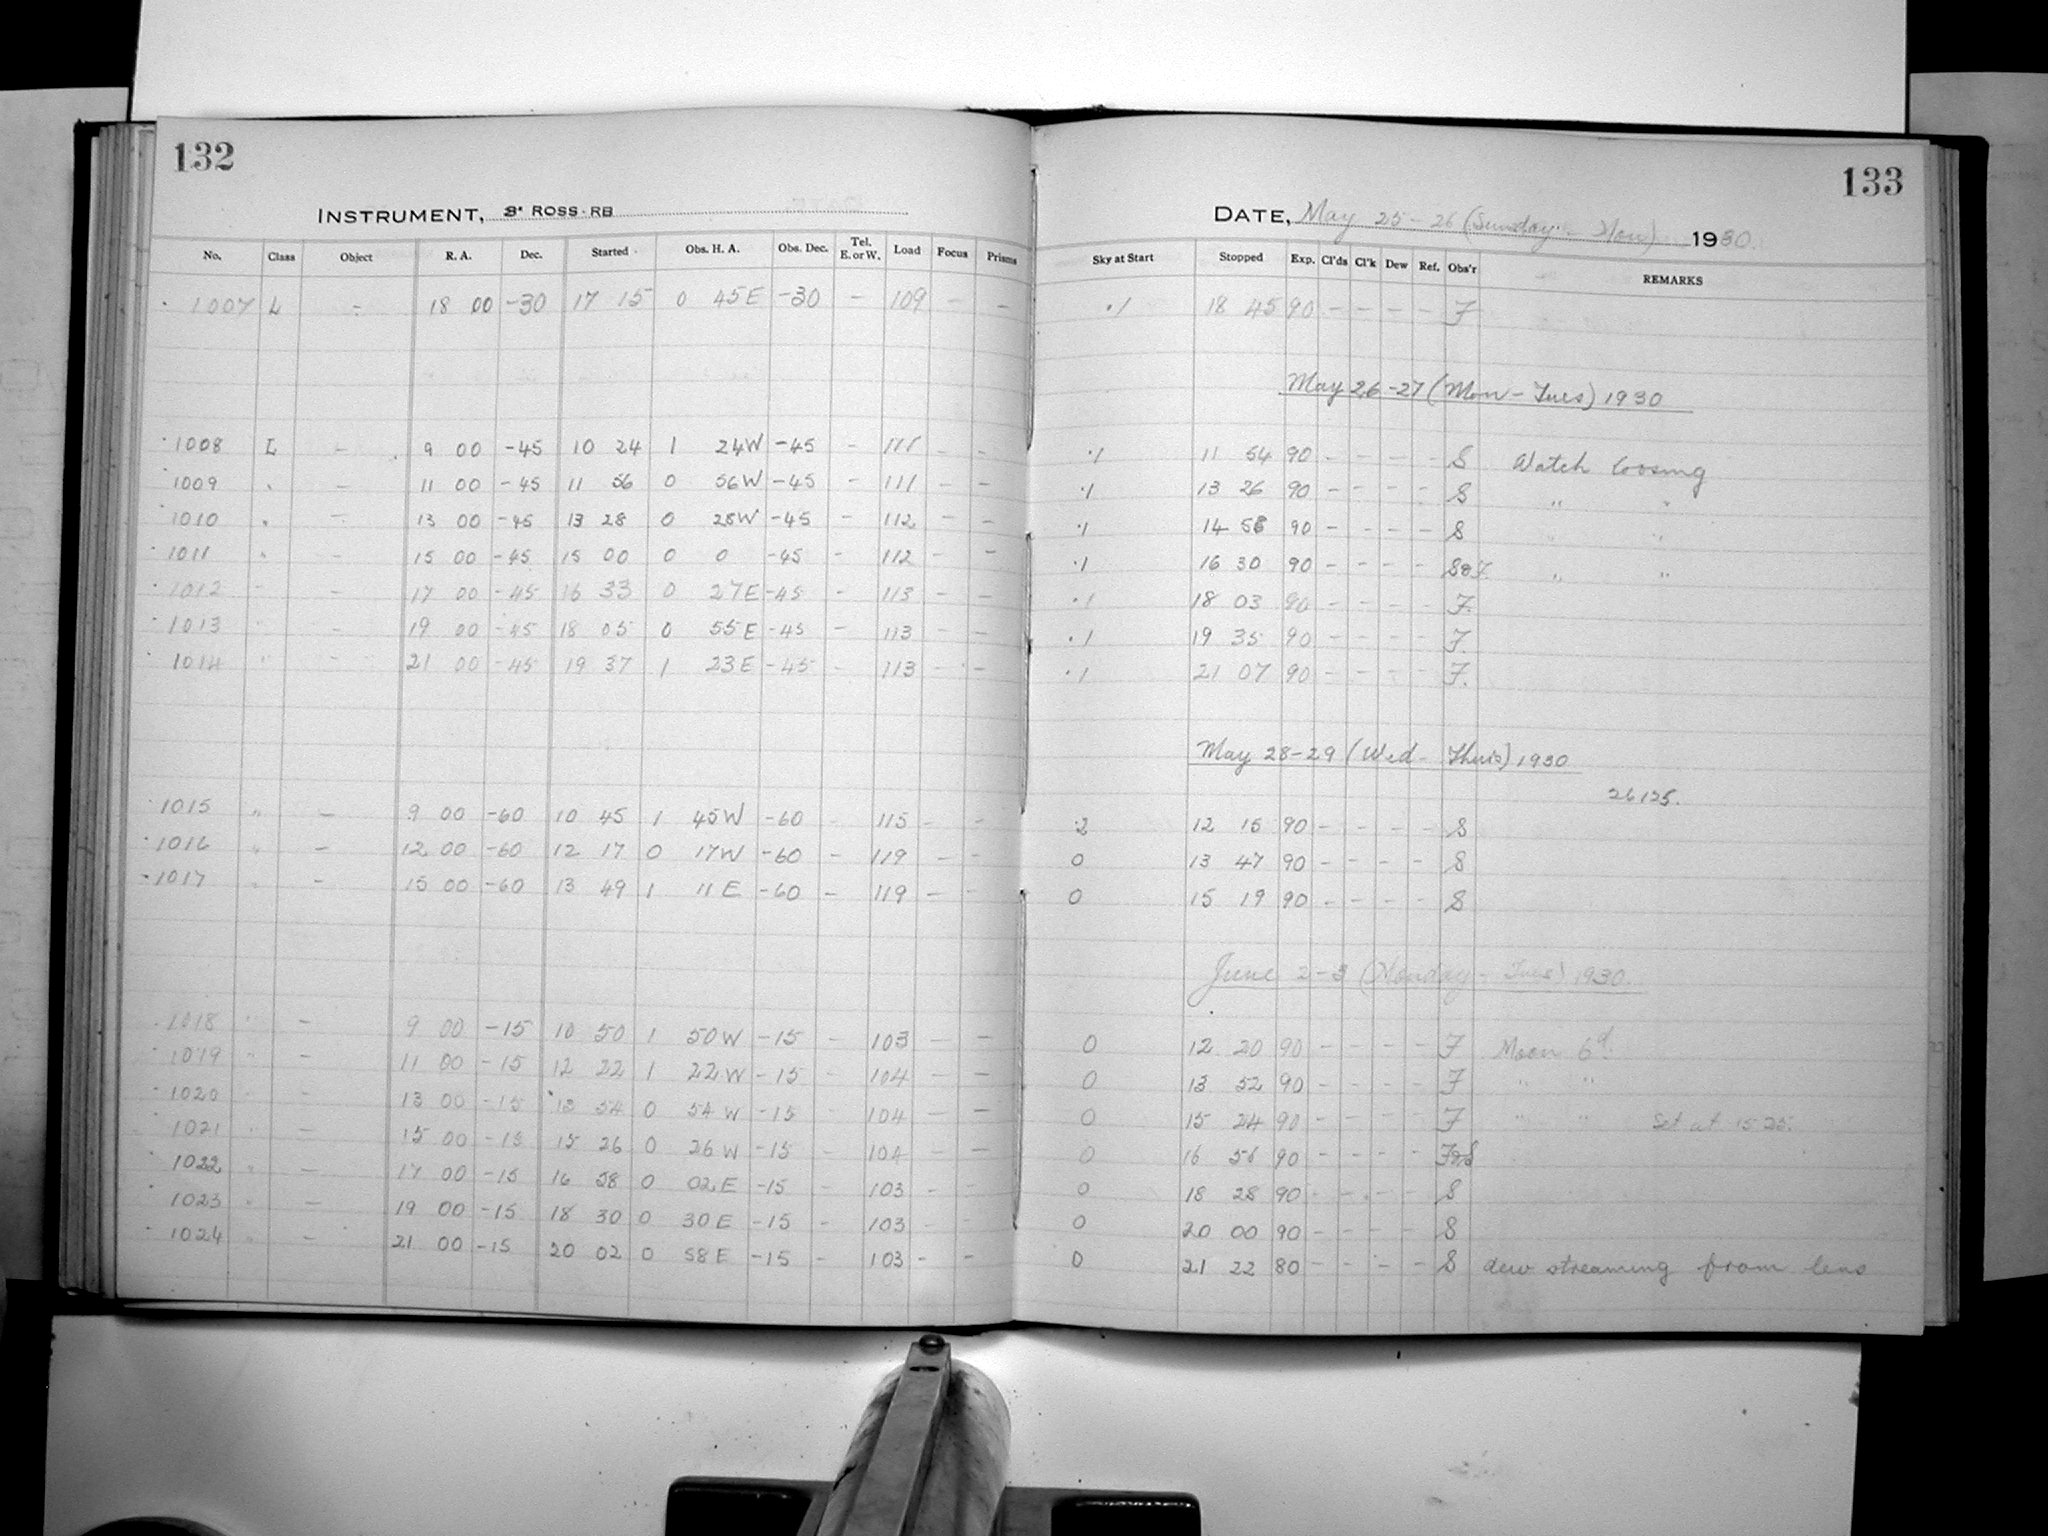 132
INSTRUMENT, 3" ROSS-RB
No. Class Object R. A. Dec. Started Obs. H. A. Obs. Dec. Tel. E. or W. Load Focus Prisms
1007 L - 18 00 -30 17 15 0 45E -30 - 109 - -
1008 L - 9 00 -45 10 24 1 24W -45 - 111 - -
1009 " - 11 00 -45 11 56 0 56W -45 - 111 - -
1010 " - 13 00 -45 13 28 0 28W -45 - 112 - -
1011 " - 15 00 -45 15 00 0 0 -45 - 112 - -
1012 " - 17 00 -45 16 33 0 27E -45 - 113 - -
1013 " - 19 00 -45 18 05 0 55E -45 - 113 - -
1014 " - 21 00 -45 19 37 1 23E -45 - 113 - -
1015 " - 9 00 -60 10 45 1 45W -60 - 115 - -
1016 " - 12 00 -60 12 17 0 17W -60 - 119 - -
1017 " - 15 00 -60 13 49 1 11E -60 - 119 - -
1018 " - 9 00 -15 10 50 1 50W -15 - 103 - -
1019 " - 11 00 -15 12 22 1 22W -15 - 104 - -
1020 " - 13 00 -15 13 54 0 54W -15 - 104 - -
1021 " - 15 00 -15 15 26 0 26W -15 - 104 - -
1022 " - 17 00 -15 16 58 0 02E -15 - 103 - -
1023 " - 19 00 -15 18 30 0 30E -15 - 103 - -
1024 " - 21 00 -15 20 02 0 58E -15 - 103 - -
133
DATE, May 25-26 (Sunday - Mon) 1930.
Sky at Start Stopped Exp. Cl'ds Cl'k Dew Ref. Obs'r REMARKS
.1 18 45 90 - - - - F
May 26-27 (Mon - Tues) 1930
.1 11 54 90 - - - - S Watch loosing
.1 13 26 90 - - - - S " "
.1 14 58 90 - - - - S " "
.1 16 30 90 - - - - S&F. " "
.1 18 03 90 - - - - F.
.1 19 35 90 - - - - F.
.1 21 07 90 - - - - F.
May 28-29 (Wed - Thurs) 1930
26125.
.2 12 15 90 - - - - S
0 13 47 90 - - - - S
0 15 19 90 - - - - S
June 2-3 (Monday - Tues) 1930.
0 12 20 90 - - - - F Moon 6d.
0 13 52 90 - - - - F " "
0 15 24 90 - - - - F " " Set at 15 25.
0 16 56 90 - - - - F&S
0 18 28 90 - - - - S
0 20 00 90 - - - - S
0 21 22 80 - - - - S dew streaming from lens